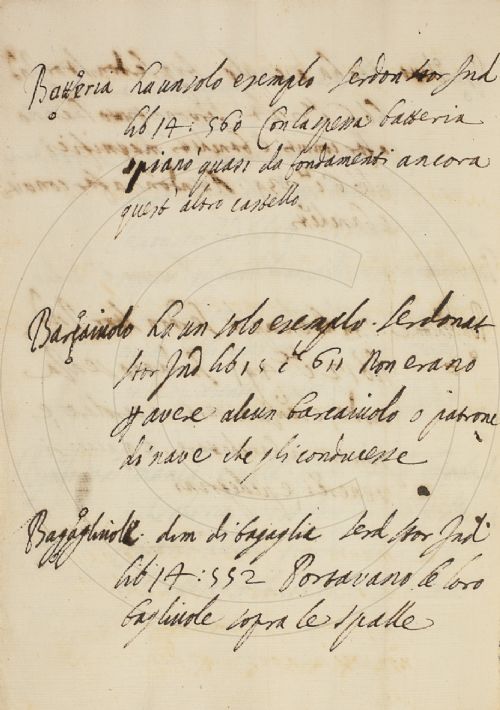 Batteria ha un solo esemplo Serdon stor Ind
lib 14: 560 Con la spessa batteria
spianò quasi da fondamenti ancora
quest altro castello
Barcaiuolo ha un solo esemplo. Serdonat
stor Ind lib 15 c 611 Non erano
avere alcun barcaiuolo o patrone
di nave che gli conducesse
Bagagliuole. dim di bagaglia Serd stor Ind
lib 14: 552 Portavano le loro
bagliuole sopra le spalle